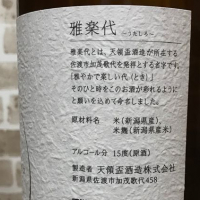 雅楽代
―うたしろ―
雅楽代とは、天領盃酒造が所在する
佐渡市加茂歌代を発祥とする言字です。
「雅やかで楽しい代(とき)」
そのひと時をこのお酒が彩れるように
と願いを込めて命名しました。
原材料名 米(新潟県産)、
米麹(新潟県産米)
アルコール分 15度(原酒)
製造者 天領盃酒造株式会社
新潟県佐渡市加茂歌代458